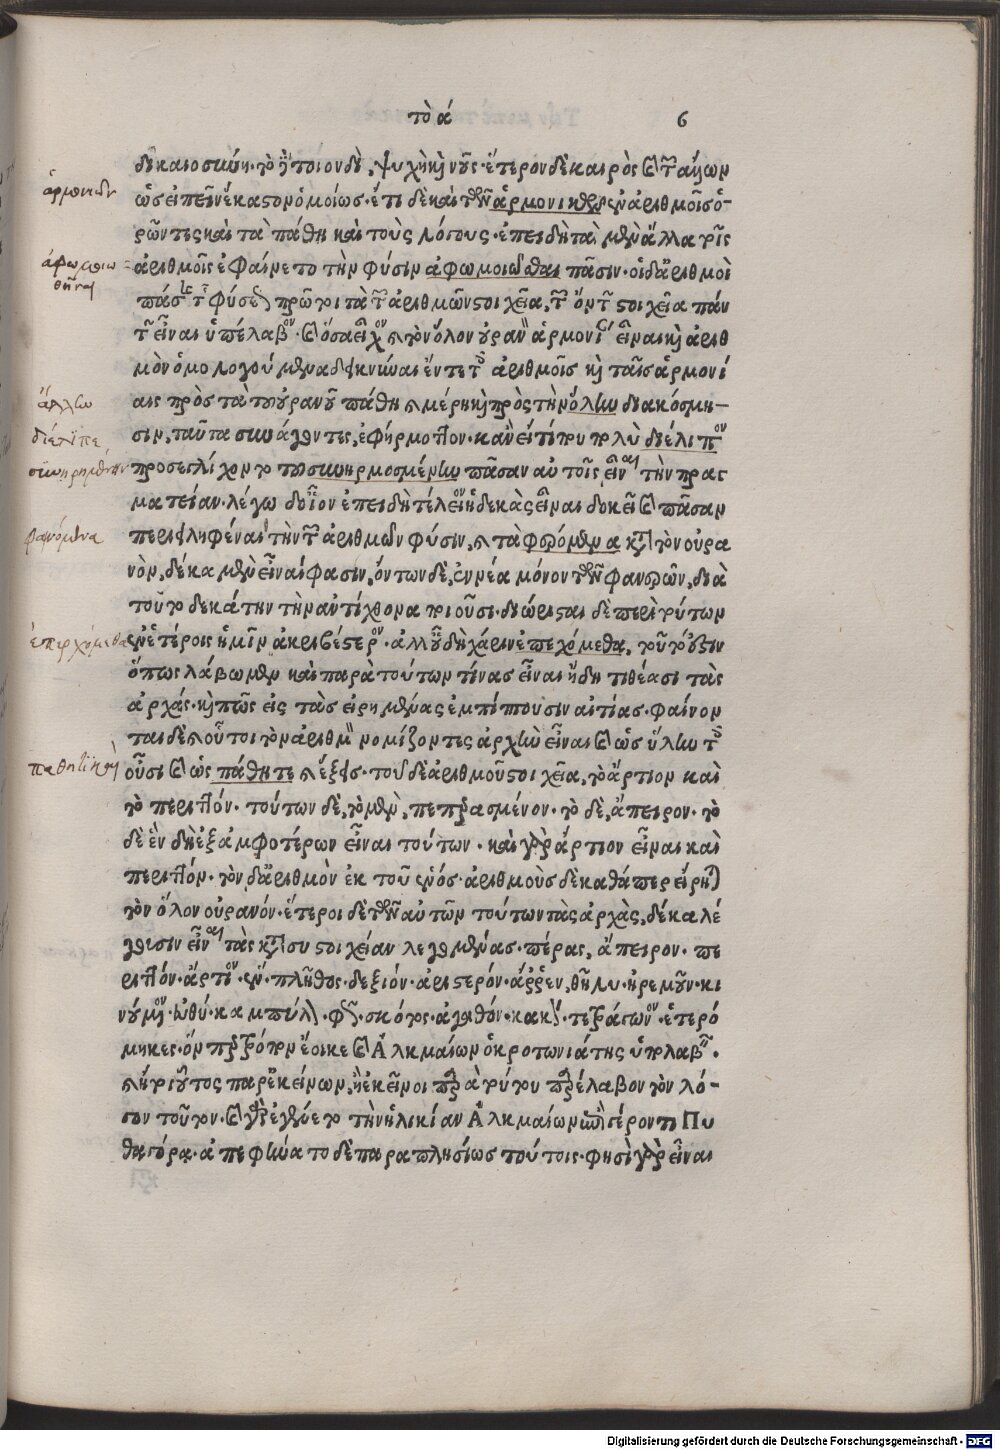 τὸ ά 6
δικαιοσύνη· τὸ δὴ τοιονδὶ, ψυχὴ κὴ νοῦς· ἕτερον δὲ καιρὸς καὶ τῶν ἄλλων
ἁρμονιῶν
ὡς εἰπεῖν ἕκαστον ὁμοίως· ἔτι δὲ καὶ τῶν ἁρμονικῶν ἐν ἀριθμοῖς ὁ-
ρῶντες καὶ τὰ πάθη καὶ τοὺς λόγους· ἐπειδὴ τὰ μὲν ἄλλα τοῖς
ἀφωμοιω
θῆναι
ἀριθμοῖς ἐφαίνετο τὴν φύσιν ἀφωμοιῶσθαι πᾶσιν· οἱ δ' ἀριθμοὶ
πάσης τῆς φύσεως πρῶτοι τὰ τῶν ἀριθμῶν στοιχεῖα, τῶν ὄντων στοιχεῖα πάν
των εἶναι ὑπέλαβον· καὶ ὅσα εἶχον καὶ τὸν ὅλον οὐρανὸν ἁρμονίαν εἶναι κὴ ἀριθ
μὸν ὁμολογούμενα δεικνύναι ἔν τε τοῖς ἀριθμοῖς κὴ ταῖς ἁρμονί
αις πρὸς τὰ τοῦ οὐρανοῦ πάθη καὶ μέρη κὴ πρὸς τὴν ὅλην διακόσμη-
ἄλλω
διέλιπε
σιν, ταῦτα συνάγοντες, ἐφήρμοττον· κἂν εἴ τί που πλὺ διέλιπον
προσεγλίχοντο τοῦ συνηρμοσμένην πᾶσαν αὐτοῖς εἶναι τὴν πραγ
ματείαν· λέγω δ' οἷον ἐπειδὴ τέλειον ἡ δεκὰς εἶναι δοκεῖ καὶ πᾶσαν
φαινόμενα
περιειληφέναι τὴν τῶν ἀριθμῶν φύσιν, καὶ τὰ φερόμενα κατὰ τὸν οὐρα
νὸν, δέκα μὲν εἶναί φασιν, ὄντων δὲ, ἐννέα μόνον τῶν φανερῶν, διὰ
τοῦτο δεκάτην τὴν ἀντίχθονα ποιοῦσι· διώρισται δὲ περὶ τούτων
ἐπερχόμεθα
ἐν ἑτέροις ἡμῖν ἀκριβέστερον· ἀλλ' οὗ δὴ χάριν ἐπεχόμεθα, τοῦτό ἐστιν
ὅπως λάβωμεν καὶ παρὰ τούτων τίνας εἶναι ἤδη τιθέασι τὰς
ἀρχάς· κὴ πῶς εἰς τὰς εἰρημένας ἐμπίπτουσιν αἰτίας· φαίνον
ται δὲ καὶ οὗτοι τὸν ἀριθμὸν νομίζοντες ἀρχὴν εἶναι καὶ ὡς ὕλην τοῖς
οὖσι καὶ ὡς πάθη τε καὶ ἕξεις· τοῦ δὲ ἀριθμοῦ στοιχεῖα, τὸ ἄρτιον καὶ
τὸ περιττόν· τούτων δὲ, τὸ μὲν, πεπερασμένον· τὸ δὲ, ἄπειρον· τὸ
δὲ ἓν δὴ ἐξ ἀμφοτέρων εἶναι τούτων· καὶ γὰρ ἄρτιον εἶναι καὶ
περιττόν· τὸν δ' ἀριθμὸν ἐκ τοῦ ἑνός· ἀριθμοὺς δὲ καθάπερ εἴρηται
τὸν ὅλον οὐρανόν· ἕτεροι δὲ τῶν αὐτῶν τούτων τὰς ἀρχὰς, δέκα λέ
γουσιν εἶναι τὰς κατὰ συστοιχείαν λεγομένας· πέρας, ἄπειρον· πε
ριττόν· ἄρτιον· ἕν· πλῆθος· δεξιόν· ἀριστερόν· ἄρρεν, θῆλυ· ἠρεμοῦν· κι
νούμενον· εὐθύ· καμπύλον· φῶς· σκότος· ἀγαθόν· κακόν· τετράγωνον· ἑτερό
μηκες· ὅνπερ τρόπον ἔοικε καὶ Ἀλκμαίων ὁ κροτωνιάτης ὑπολαβεῖν·
καὶ ἤτοι οὗτος παρ' ἐκείνων, ἢ ἐκεῖνοι παρὰ τούτου παρέλαβον τὸν λό-
γον τοῦτον· καὶ γὰρ ἐγένετο τὴν ἡλικίαν Ἀλκμαίων ἐπὶ γέροντι Πυ
θαγόρᾳ· ἀπεφήνατο δὲ παραπλησίως τούτοις· φησὶ γὰρ εἶναι
Digitalisierung gefördert durch die Deutsche Forschungsgemeinschaft - DFG